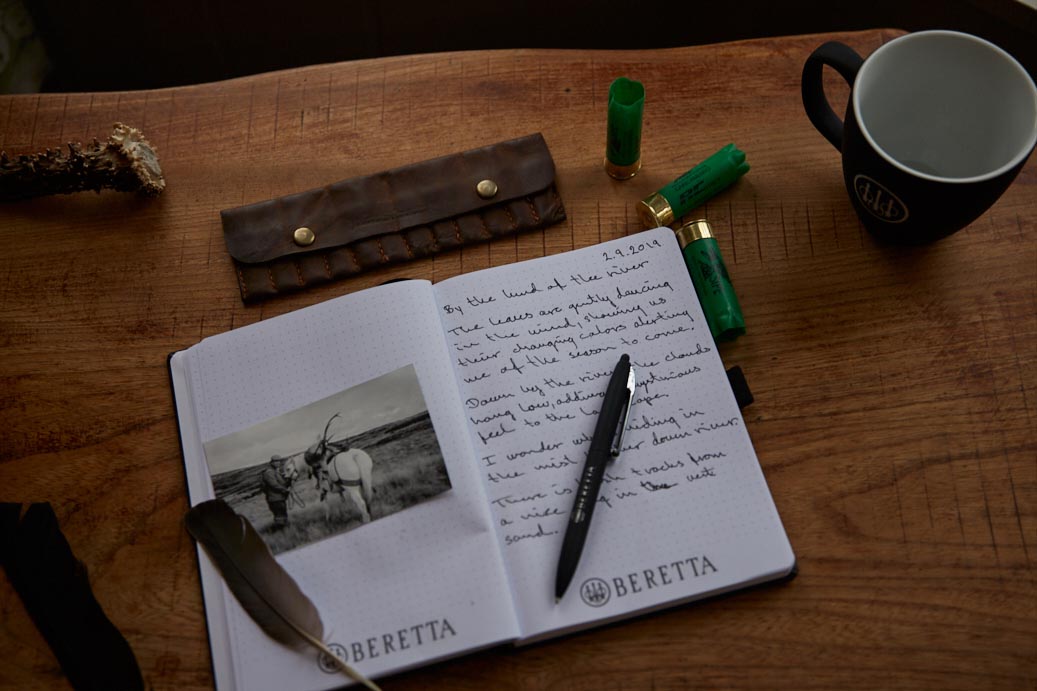 2.9.2019
By the bend of the river
The leaves are gently dancing
in the wind, showing us
their changing colors alerting
me of the season to come.
Down by the river the clouds
hang low, adding mysterious
feel to the
I wonder hiding in
the mist down river.
There is tracks from
a nice in the wet
sand.
BERETTA
BERETTA
BERETTA